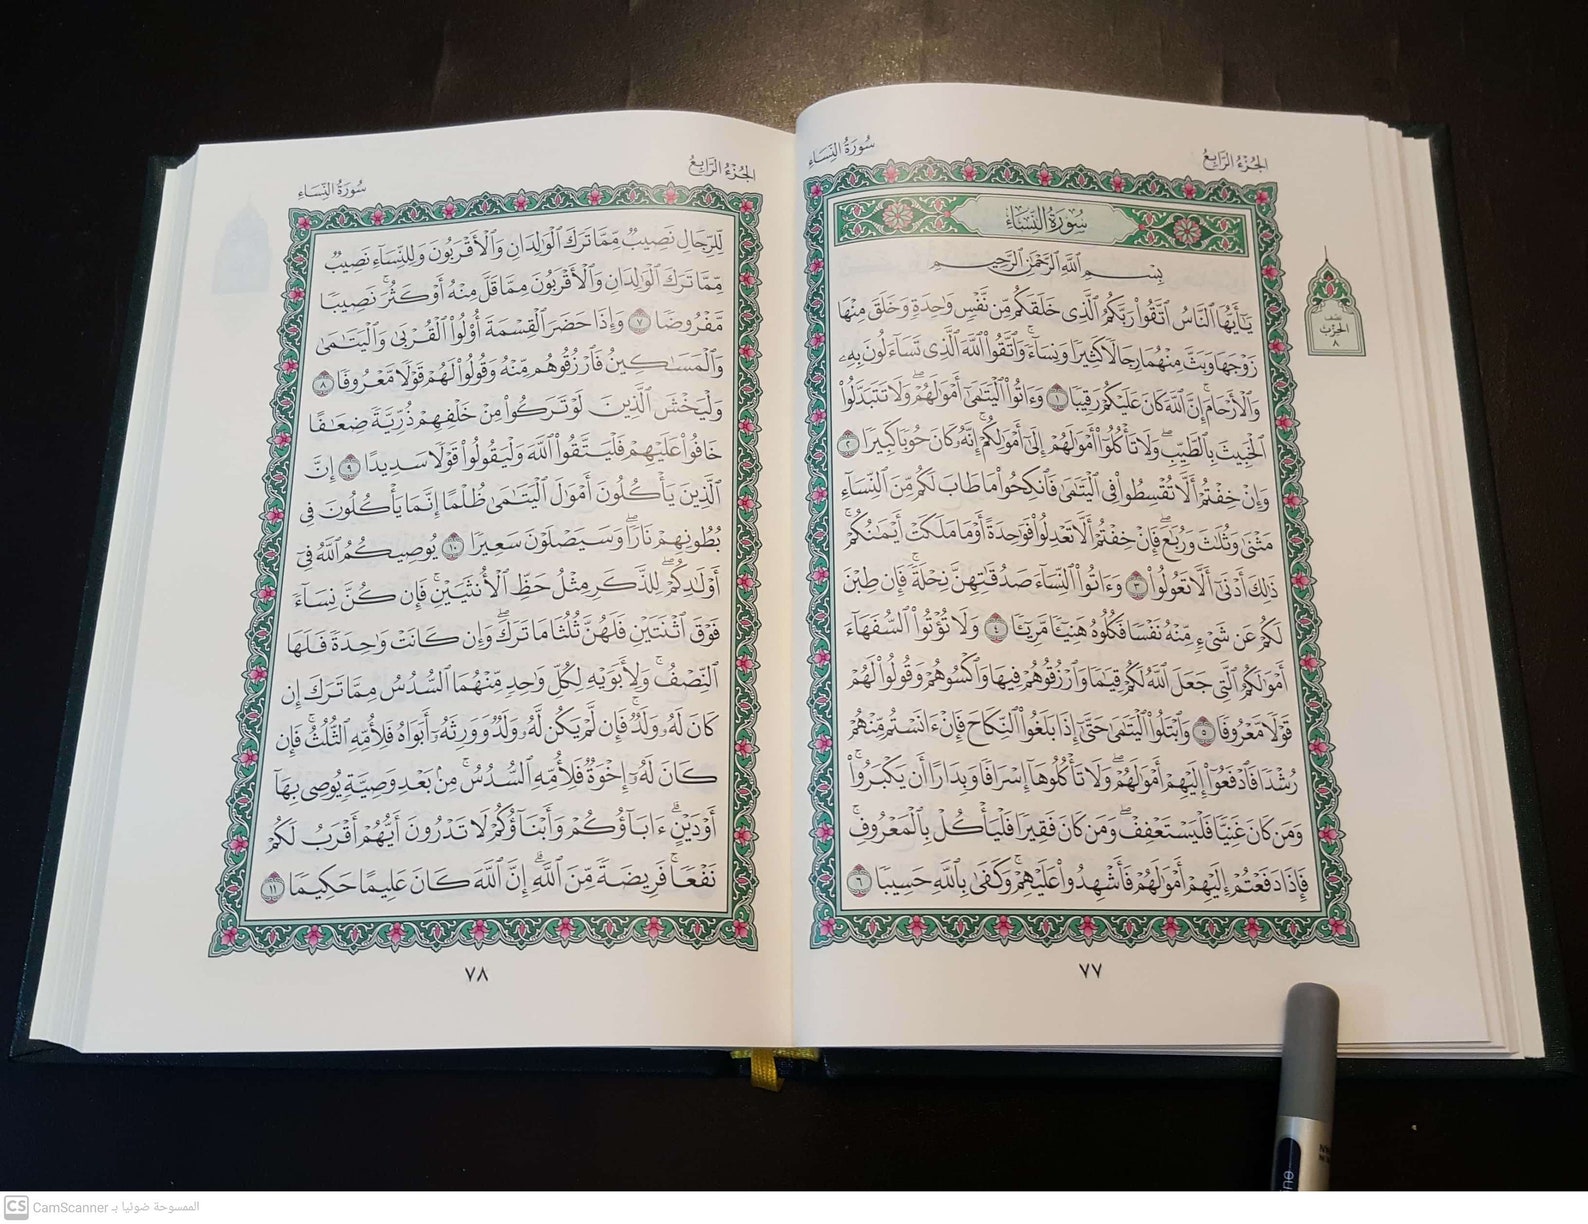 الجُزْءُ الرَّابِعُ
سُورَةُ النِّسَاءِ
سُورَةُ النِّسَاءِ
بِسْمِ ٱللَّهِ ٱلرَّحْمَٰنِ ٱلرَّحِيمِ
يَٰٓأَيُّهَا ٱلنَّاسُ ٱتَّقُوا۟ رَبَّكُمُ ٱلَّذِى خَلَقَكُم مِّن نَّفْسٍ وَٰحِدَةٍ وَخَلَقَ مِنْهَا
زَوْجَهَا وَبَثَّ مِنْهُمَا رِجَالًا كَثِيرًا وَنِسَآءً ۚ وَٱتَّقُوا۟ ٱللَّهَ ٱلَّذِى تَسَآءَلُونَ بِهِۦ
وَٱلْأَرْحَامَ ۚ إِنَّ ٱللَّهَ كَانَ عَلَيْكُمْ رَقِيبًا ١ وَءَاتُوا۟ ٱلْيَتَٰمَىٰٓ أَمْوَٰلَهُمْ ۖ وَلَا تَتَبَدَّلُوا۟
ٱلْخَبِيثَ بِٱلطَّيِّبِ ۖ وَلَا تَأْكُلُوٓا۟ أَمْوَٰلَهُمْ إِلَىٰٓ أَمْوَٰلِكُمْ ۚ إِنَّهُۥ كَانَ حُوبًا كَبِيرًا ٢
وَإِنْ خِفْتُمْ أَلَّا تُقْسِطُوا۟ فِى ٱلْيَتَٰمَىٰ فَٱنكِحُوا۟ مَا طَابَ لَكُم مِّنَ ٱلنِّسَآءِ
مَثْنَىٰ وَثُلَٰثَ وَرُبَٰعَ ۖ فَإِنْ خِفْتُمْ أَلَّا تَعْدِلُوا۟ فَوَٰحِدَةً أَوْ مَا مَلَكَتْ أَيْمَٰنُكُمْ ۚ
ذَٰلِكَ أَدْنَىٰٓ أَلَّا تَعُولُوا۟ ٣ وَءَاتُوا۟ ٱلنِّسَآءَ صَدُقَٰتِهِنَّ نِحْلَةً ۚ فَإِن طِبْنَ
لَكُمْ عَن شَىْءٍ مِّنْهُ نَفْسًا فَكُلُوهُ هَنِيٓـًٔا مَّرِيٓـًٔا ٤ وَلَا تُؤْتُوا۟ ٱلسُّفَهَآءَ
أَمْوَٰلَكُمُ ٱلَّتِى جَعَلَ ٱللَّهُ لَكُمْ قِيَٰمًا وَٱرْزُقُوهُمْ فِيهَا وَٱكْسُوهُمْ وَقُولُوا۟ لَهُمْ
قَوْلًا مَّعْرُوفًا ٥ وَٱبْتَلُوا۟ ٱلْيَتَٰمَىٰ حَتَّىٰٓ إِذَا بَلَغُوا۟ ٱلنِّكَاحَ فَإِنْ ءَانَسْتُم مِّنْهُمْ
رُشْدًا فَٱدْفَعُوٓا۟ إِلَيْهِمْ أَمْوَٰلَهُمْ ۖ وَلَا تَأْكُلُوهَآ إِسْرَافًا وَبِدَارًا أَن يَكْبَرُوا۟ ۚ
وَمَن كَانَ غَنِيًّا فَلْيَسْتَعْفِفْ ۖ وَمَن كَانَ فَقِيرًا فَلْيَأْكُلْ بِٱلْمَعْرُوفِ ۚ
فَإِذَا دَفَعْتُمْ إِلَيْهِمْ أَمْوَٰلَهُمْ فَأَشْهِدُوا۟ عَلَيْهِمْ ۚ وَكَفَىٰ بِٱللَّهِ حَسِيبًا ٦
نصف
الحِزْب
٨
٧٧
الجُزْءُ الرَّابِعُ
سُورَةُ النِّسَاءِ
لِّلرِّجَالِ نَصِيبٌ مِّمَّا تَرَكَ ٱلْوَٰلِدَانِ وَٱلْأَقْرَبُونَ وَلِلنِّسَآءِ نَصِيبٌ
مِّمَّا تَرَكَ ٱلْوَٰلِدَانِ وَٱلْأَقْرَبُونَ مِمَّا قَلَّ مِنْهُ أَوْ كَثُرَ ۚ نَصِيبًا
مَّفْرُوضًا ٧ وَإِذَا حَضَرَ ٱلْقِسْمَةَ أُو۟لُوا۟ ٱلْقُرْبَىٰ وَٱلْيَتَٰمَىٰ
وَٱلْمَسَٰكِينُ فَٱرْزُقُوهُم مِّنْهُ وَقُولُوا۟ لَهُمْ قَوْلًا مَّعْرُوفًا ٨
وَلْيَخْشَ ٱلَّذِينَ لَوْ تَرَكُوا۟ مِنْ خَلْفِهِمْ ذُرِّيَّةً ضِعَٰفًا
خَافُوا۟ عَلَيْهِمْ فَلْيَتَّقُوا۟ ٱللَّهَ وَلْيَقُولُوا۟ قَوْلًا سَدِيدًا ٩ إِنَّ
ٱلَّذِينَ يَأْكُلُونَ أَمْوَٰلَ ٱلْيَتَٰمَىٰ ظُلْمًا إِنَّمَا يَأْكُلُونَ فِى
بُطُونِهِمْ نَارًا ۖ وَسَيَصْلَوْنَ سَعِيرًا ١٠ يُوصِيكُمُ ٱللَّهُ فِىٓ
أَوْلَٰدِكُمْ ۖ لِلذَّكَرِ مِثْلُ حَظِّ ٱلْأُنثَيَيْنِ ۚ فَإِن كُنَّ نِسَآءً
فَوْقَ ٱثْنَتَيْنِ فَلَهُنَّ ثُلُثَا مَا تَرَكَ ۖ وَإِن كَانَتْ وَٰحِدَةً فَلَهَا
ٱلنِّصْفُ ۚ وَلِأَبَوَيْهِ لِكُلِّ وَٰحِدٍ مِّنْهُمَا ٱلسُّدُسُ مِمَّا تَرَكَ إِن
كَانَ لَهُۥ وَلَدٌ ۚ فَإِن لَّمْ يَكُن لَّهُۥ وَلَدٌ وَوَرِثَهُۥٓ أَبَوَاهُ فَلِأُمِّهِ ٱلثُّلُثُ ۚ فَإِن
كَانَ لَهُۥٓ إِخْوَةٌ فَلِأُمِّهِ ٱلسُّدُسُ ۚ مِنۢ بَعْدِ وَصِيَّةٍ يُوصِى بِهَآ
أَوْ دَيْنٍ ۗ ءَابَآؤُكُمْ وَأَبْنَآؤُكُمْ لَا تَدْرُونَ أَيُّهُمْ أَقْرَبُ لَكُمْ
نَفْعًا ۚ فَرِيضَةً مِّنَ ٱللَّهِ ۗ إِنَّ ٱللَّهَ كَانَ عَلِيمًا حَكِيمًا ١١
٧٨
CS CamScanner الممسوحة ضوئيا بـ